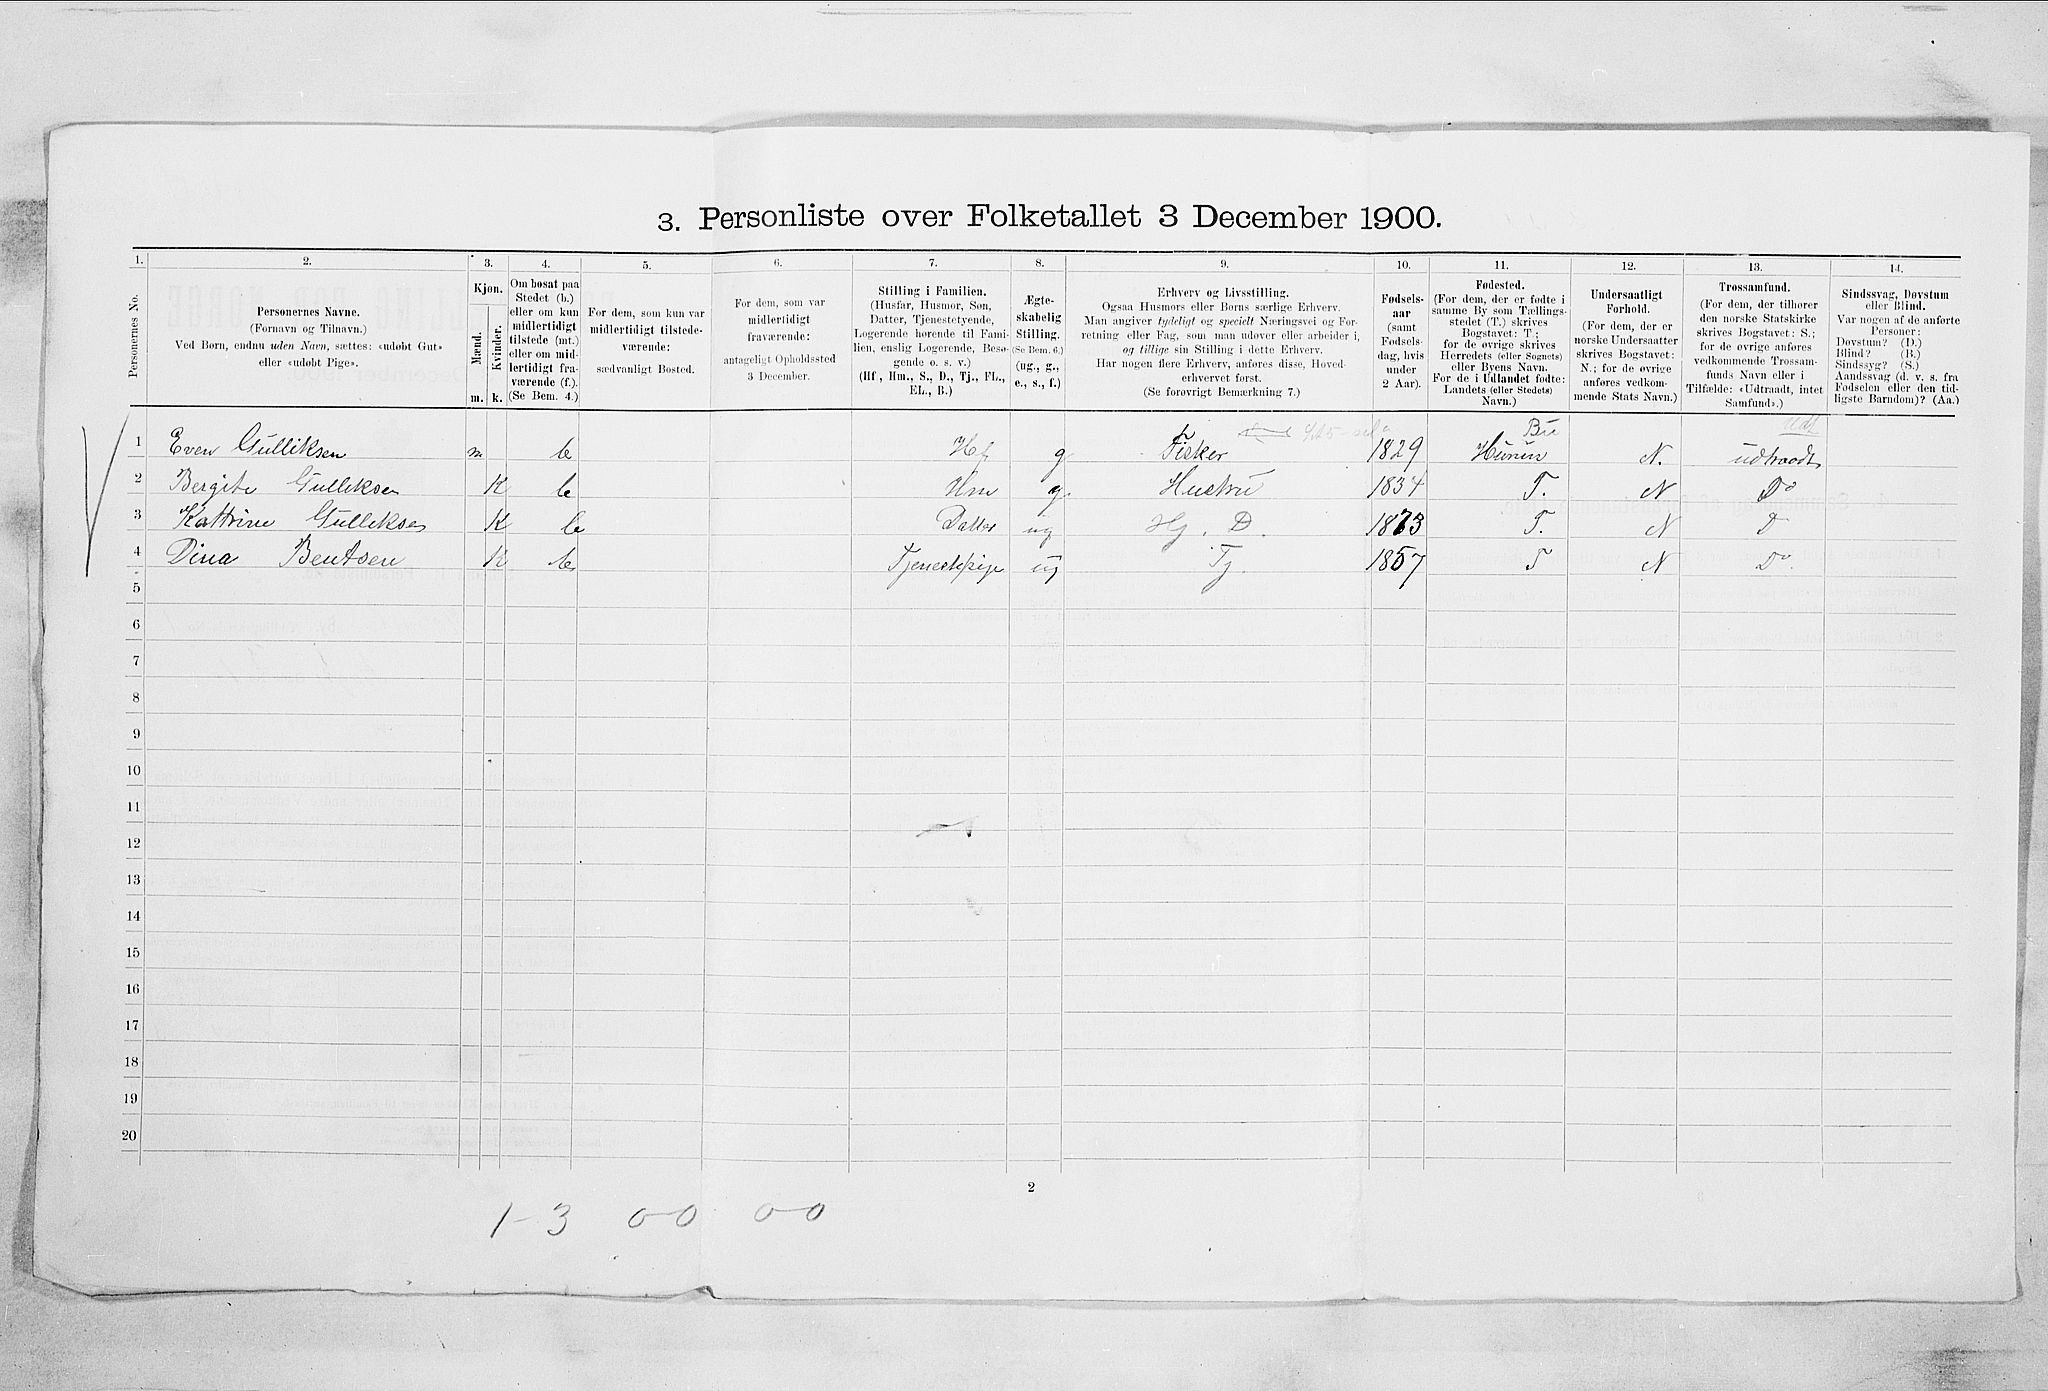 3. Personliste over Folketallet 3 December 1900.
1. 2. 3. 4. 5. 6. 7. 8. 9. 10. 11. 12. 13. 14.
Personernes No.
Personernes Navne.
(Fornavn og Tilnavn.)
Ved Børn, endnu uden Navn, sættes: «udøbt Gut»
eller «udøbt Pige».
Kjøn.
Mænd.
Kvinder.
m. k.
Om bosat paa
Stedet (b.)
eller om kun
midlertidigt
tilstede (mt.)
eller om mid-
lertidigt fra-
værende (f.).
(Se Bem. 4.)
For dem, som kun var
midlertidigt tilstede-
værende:
sædvanligt Bosted.
For dem, som var
midlertidigt
fraværende:
antageligt Opholdssted
3 December.
Stilling i Familien.
(Husfar, Husmor, Søn,
Datter, Tjenestetyende,
Logerende hørende til Fami-
lien, enslig Logerende, Besø-
gende o. s. v.)
(Hf., Hm., S., D., Tj., FL.,
EL., B.)
Ægte-
skabelig
Stilling.
(Se Bem. 6.)
(ug., g.,
e., s., f.)
Erhverv og Livsstilling.
Ogsaa Husmors eller Børns særlige Erhverv.
Man angiver tydeligt og specielt Næringsvei og For-
retning eller Fag, som man udover eller arbeider i,
og tillige sin Stilling i dette Erhverv.
Har nogen flere Erhverv, anføres disse, Hoved-
erhvervet først.
(Se forøvrigt Bemærkning 7.)
Fødsels-
aar
(samt
Fødsels-
dag, hvis
under
2 Aar).
Fødested.
(For dem, der er fødte i
samme By som Tællings-
stedet (T.) skrives
Bogstavet: T.;
for de øvrige skrives
Herredets (eller Sognets)
eller Byens Navn.
For de i Udlandet fødte:
Landets (eller Stedets)
Navn.)
Undersaatligt
Forhold.
(For dem, der er
norske Undersaatter
skrives Bogstavet:
N.; for de øvrige
anføres vedkom-
mende Stats Navn.)
Trossamfund.
(For dem, der tilhører
den norske Statskirke
skrives Bogstavet: S.;
for de øvrige anføres
vedkommende Trossam-
funds Navn eller i
Tilfælde: «Udtraadt, intet
Samfund».)
Sindssvag, Døvstum
eller Blind.
Var nogen af de anførte
Personer:
Døvstum? (D.)
Blind? (B.)
Sindssyg? (S.)
Aandssvag (d. v. s. fra
Fødselen eller den tid-
ligste Barndom)? (Aa.)
1 Even Gulliksen m b Hf g Fisker 1829 N. udtraadt
2 Bergite Gulliksen K b Hm g Hustru 1834 T. N Do
3 Kattrine Gulliksen K b Datter ug Hj. D. 1873 T. N D
4 Dina Bentsen K b Tjenestepige ug Tj. 1857 T N Do.
5
6
7
8
9
10
11
12
13
14
15
16
17
18
19
20
2
1-3 00 00